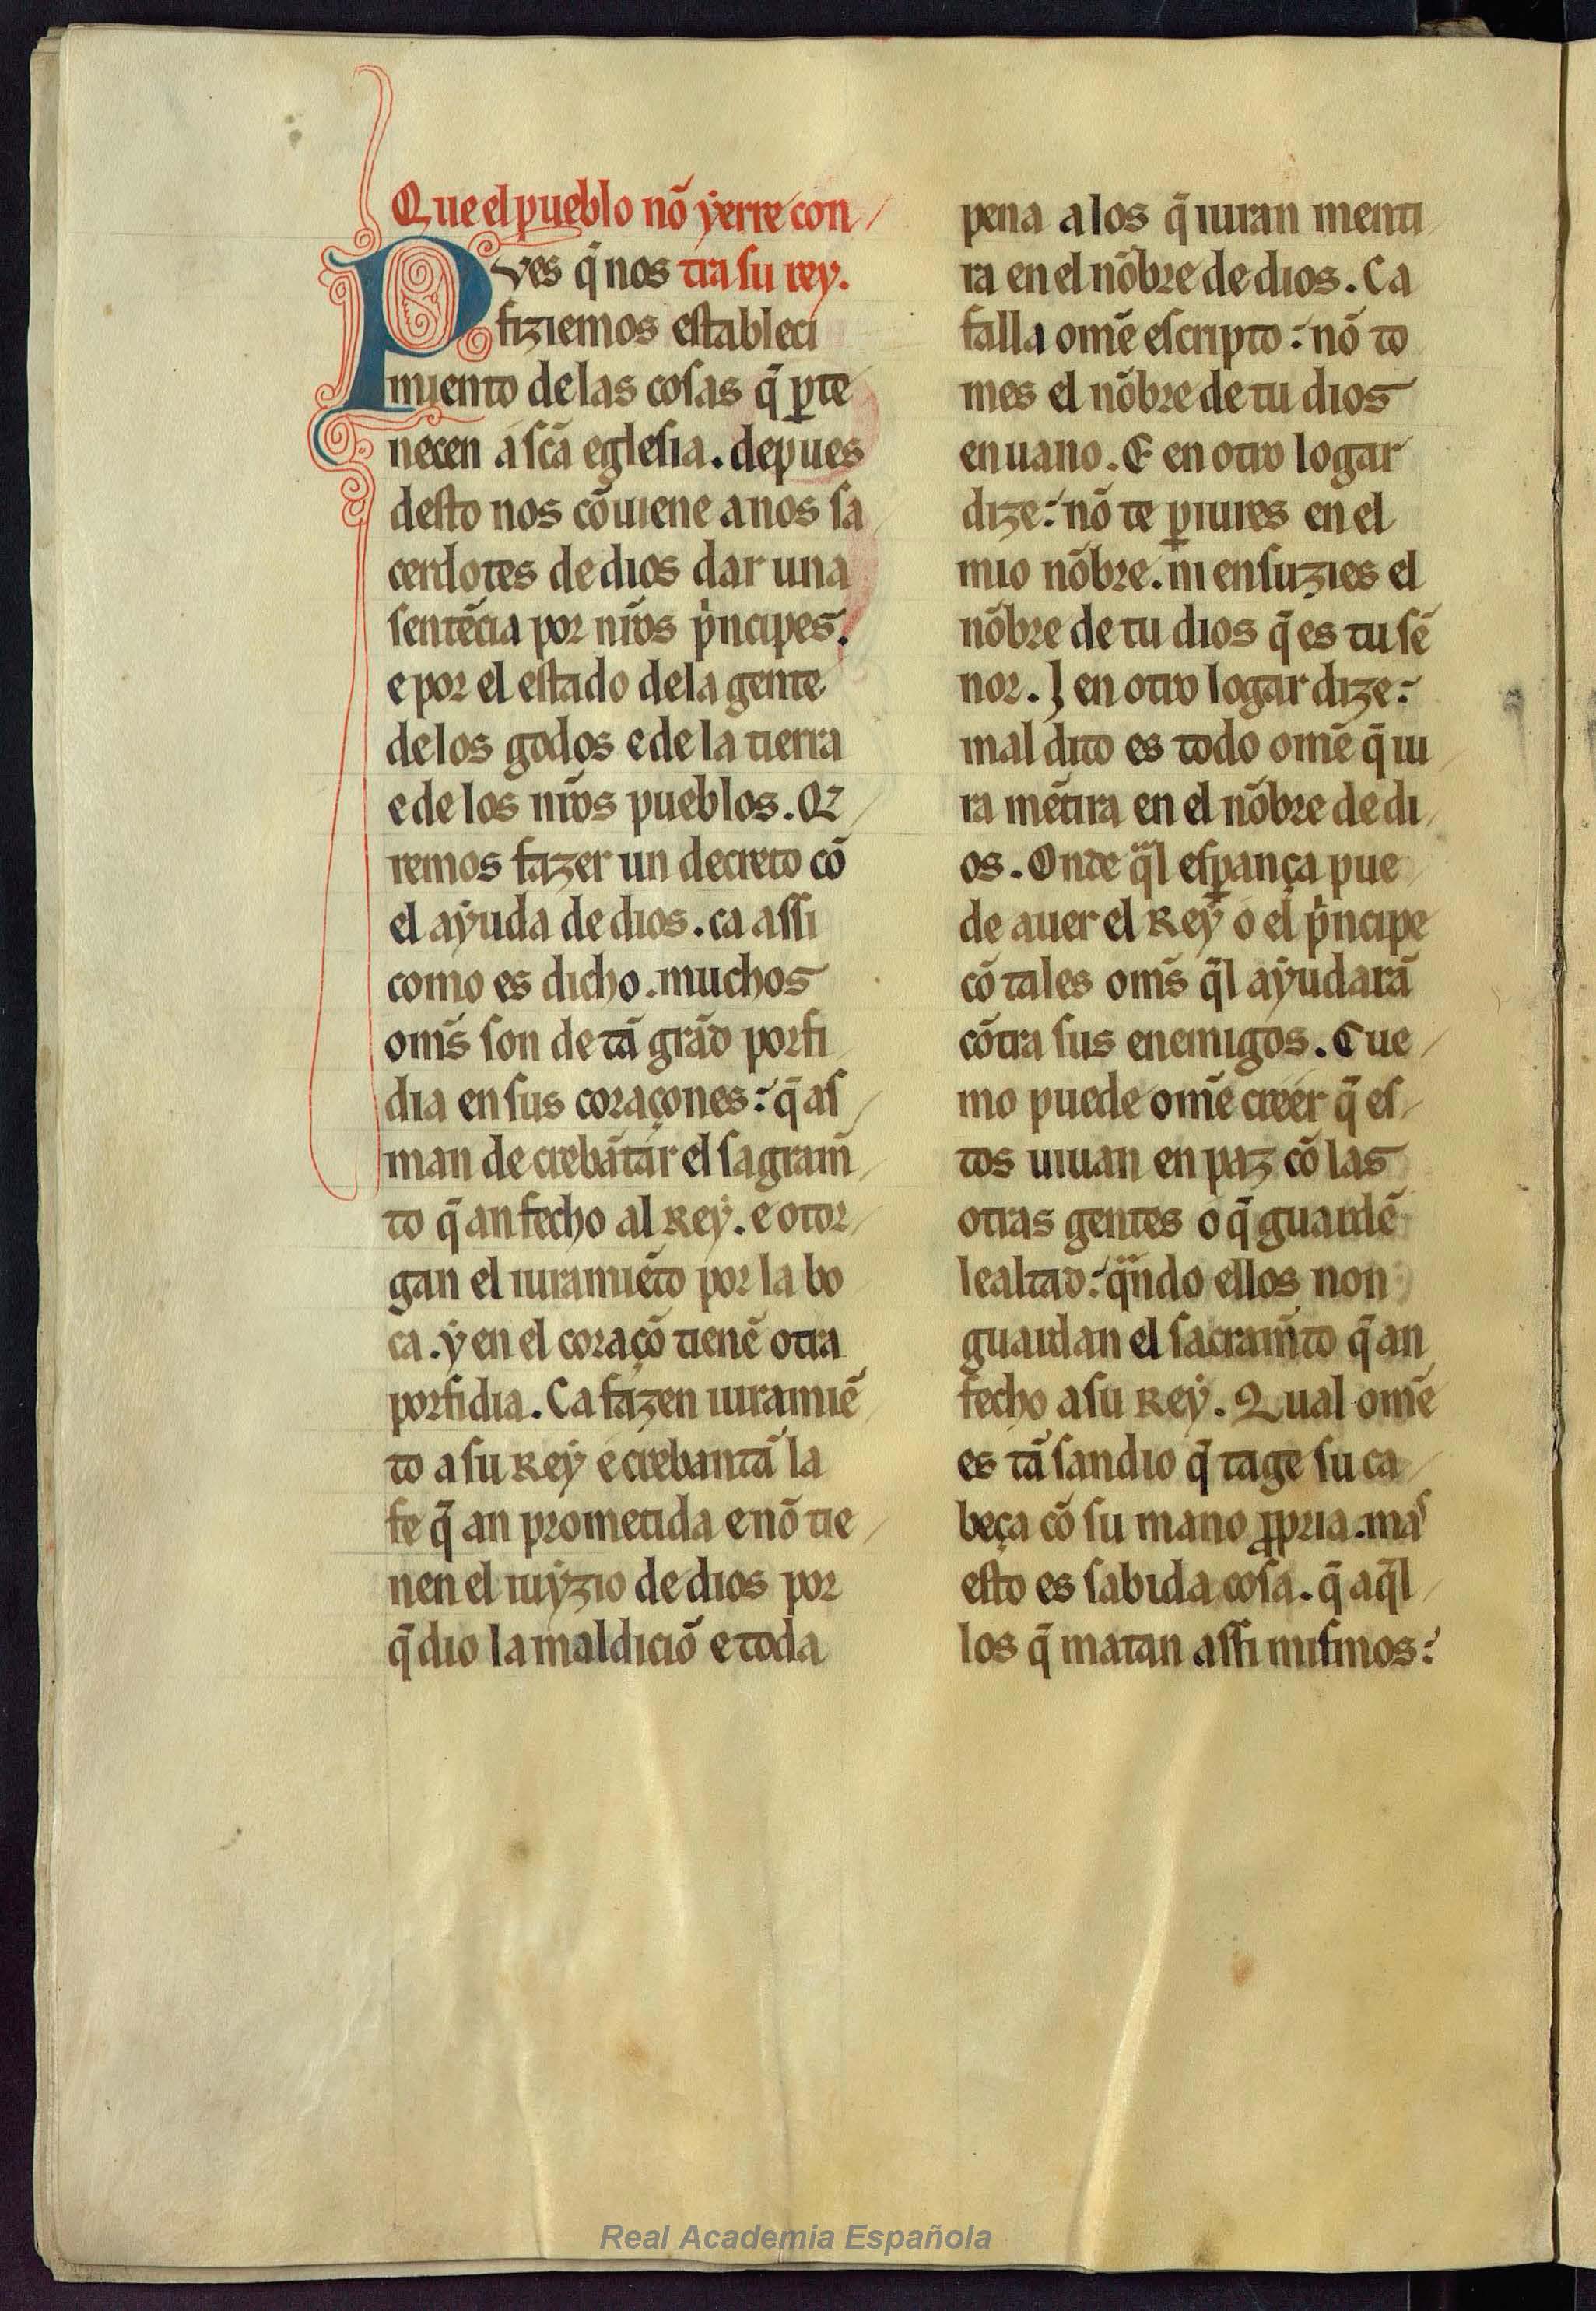 Que el pueblo nõ yerre con
Pues q̃ nos tra su rey.
fiziemos estableci
miento de las cosas q̃ ꝑte
necen a sc̃a eglesia. depues
desto nos cõuiene a nos sa
cerdotes de dios dar una
sentẽcia por nr̃os pⁱncipes.
e por el estado de la gente
de los godos e de la tierra
e de los nr̃os pueblos. Q̃r
remos fazer un decreto cõ
el ayuda de dios. ca assi
como es dicho. muchos
oms̃ son de tã grãd porfi
dia en sus coraçones: q̃ as
man de crebãtar el sagram̃
to q̃ an fecho al Rey. e otor
gan el iuramiẽto por la bo
ca. y en el coraçõ tienẽ otra
porfidia. Ca fazen iuramiẽ
to a su Rey e crebantã la
fe q̃ an prometida e nõ tie
nen el iuyzio de dios por
q̃ dio la maldiciõ e toda
pena a los q̃ iuran menti
ra en el nõbre de dios. Ca
falla omẽ escripto: nõ to
mes el nõbre de tu dios
en uano. E en otro logar
dize: nõ te ꝑiures en el
mio nõbre. ni ensuzies el
nõbre de tu dios q̃ es tu sẽ
nor. J en otro logar dize:
maldito es todo omẽ q̃ iu
ra mẽtira en el nõbre de di
os. Onde qᵃl esꝑança pue
de auer el Rey o el pⁱncipe
cõ tales oms̃ q̃l ayudarã
cõtra sus enemigos. Cue
mo puede omẽ creer q̃ es
tos uiuan en paz cõ las
otras gentes o q̃ guardẽ
lealtad: qᵃndo ellos non
guardan el sacram̃to q̃ an
fecho a su Rey. Qual omẽ
es tã sandio q̃ tage su ca
beça cõ su mano ꝓpria. mas
esto es sabida cosa. q̃ aq̃l
los q̃ matan assi mismos:
Real Academia Española